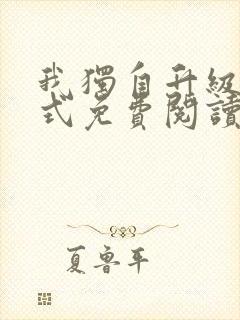 我獨自升級
式免費閱讀
夏魯平